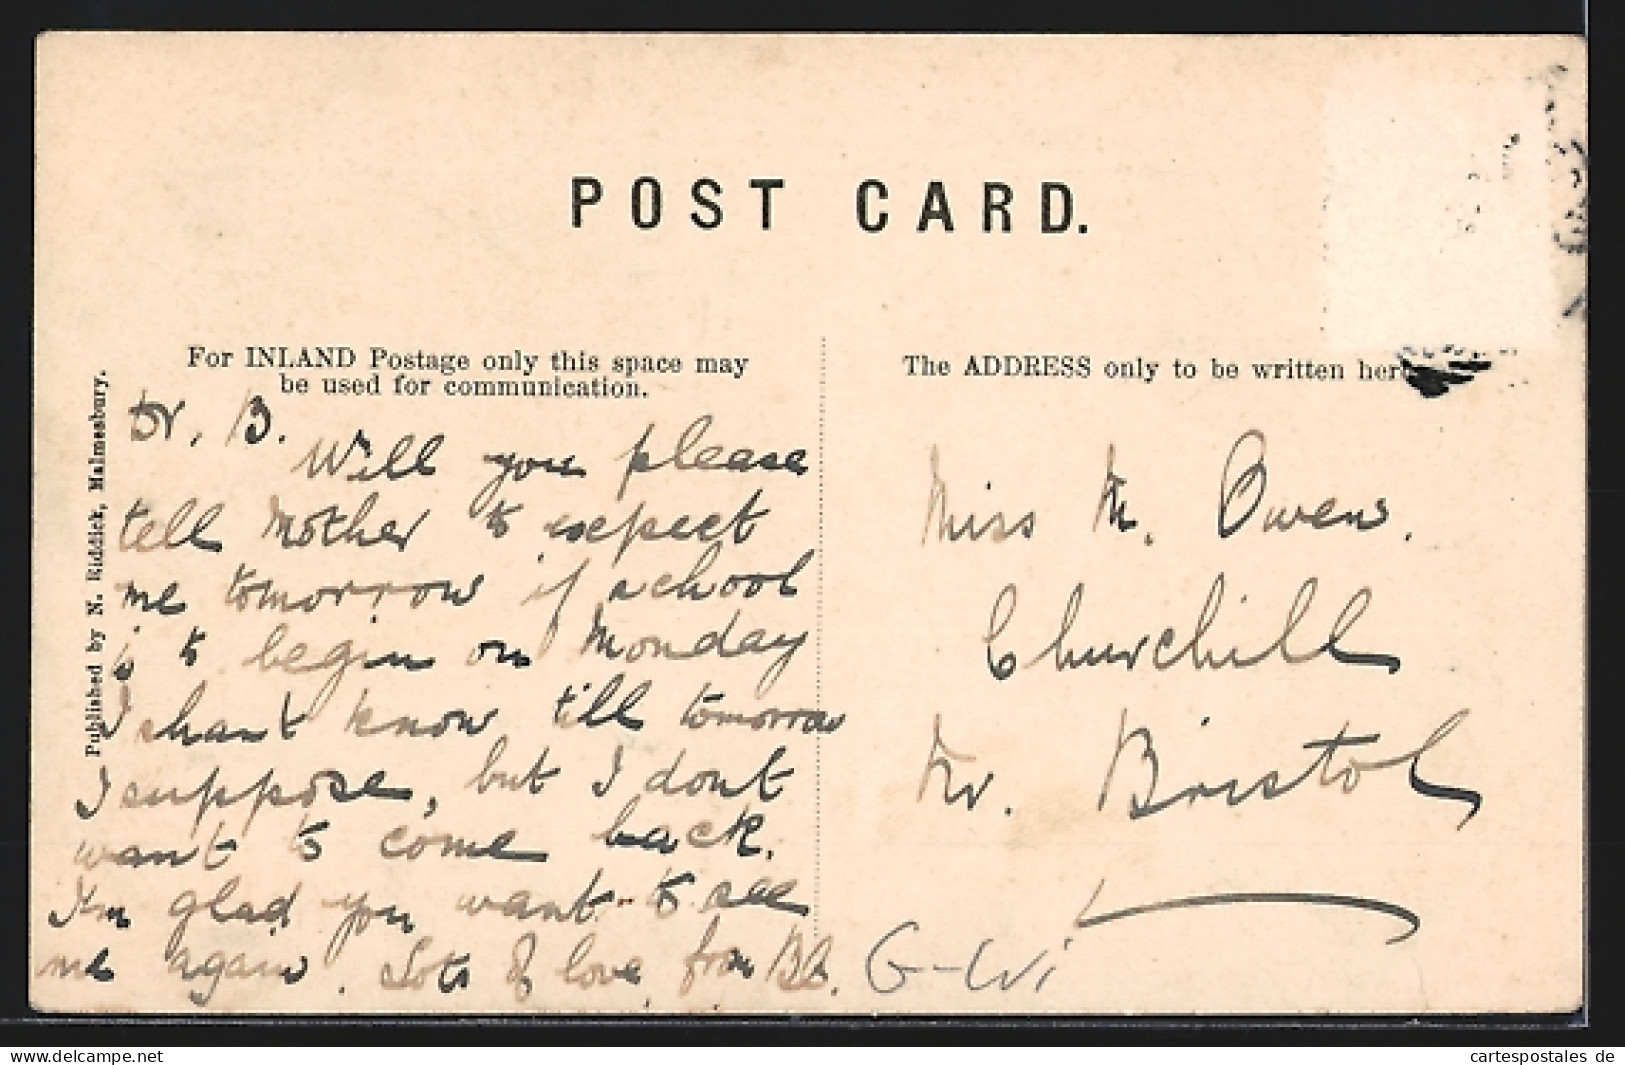 POST CARD.
For INLAND Postage only this space may
be used for communication.
The ADDRESS only to be written here
Published by N. Riddick, Malmesbury.
Dr. B.
Will you please
tell Mother to expect
me tomorrow if school
is to begin on Monday
I shant know till tomorrow
I suppose, but I dont
want to come back.
I'm glad you want to see
me again. Lots of love from
Miss M. Owen.
Churchill
Nr. Bristol
G-Wi
Delcampe.net
cartespostales de